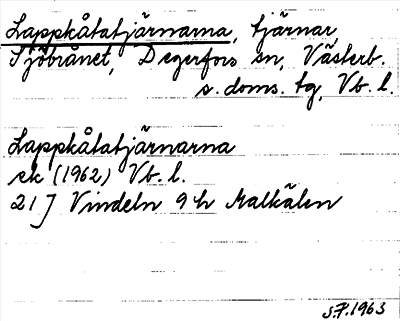 Lappkåtatjärnarna, tjärnar,
Sjöbrånet, Degerfors sn, Västerb.
s. doms. tg, Vb. l.
Lappkåtatjärnarna
ek (1962) Vb. l.
21J Vindeln 9 h Malkälen
S.F. 1963